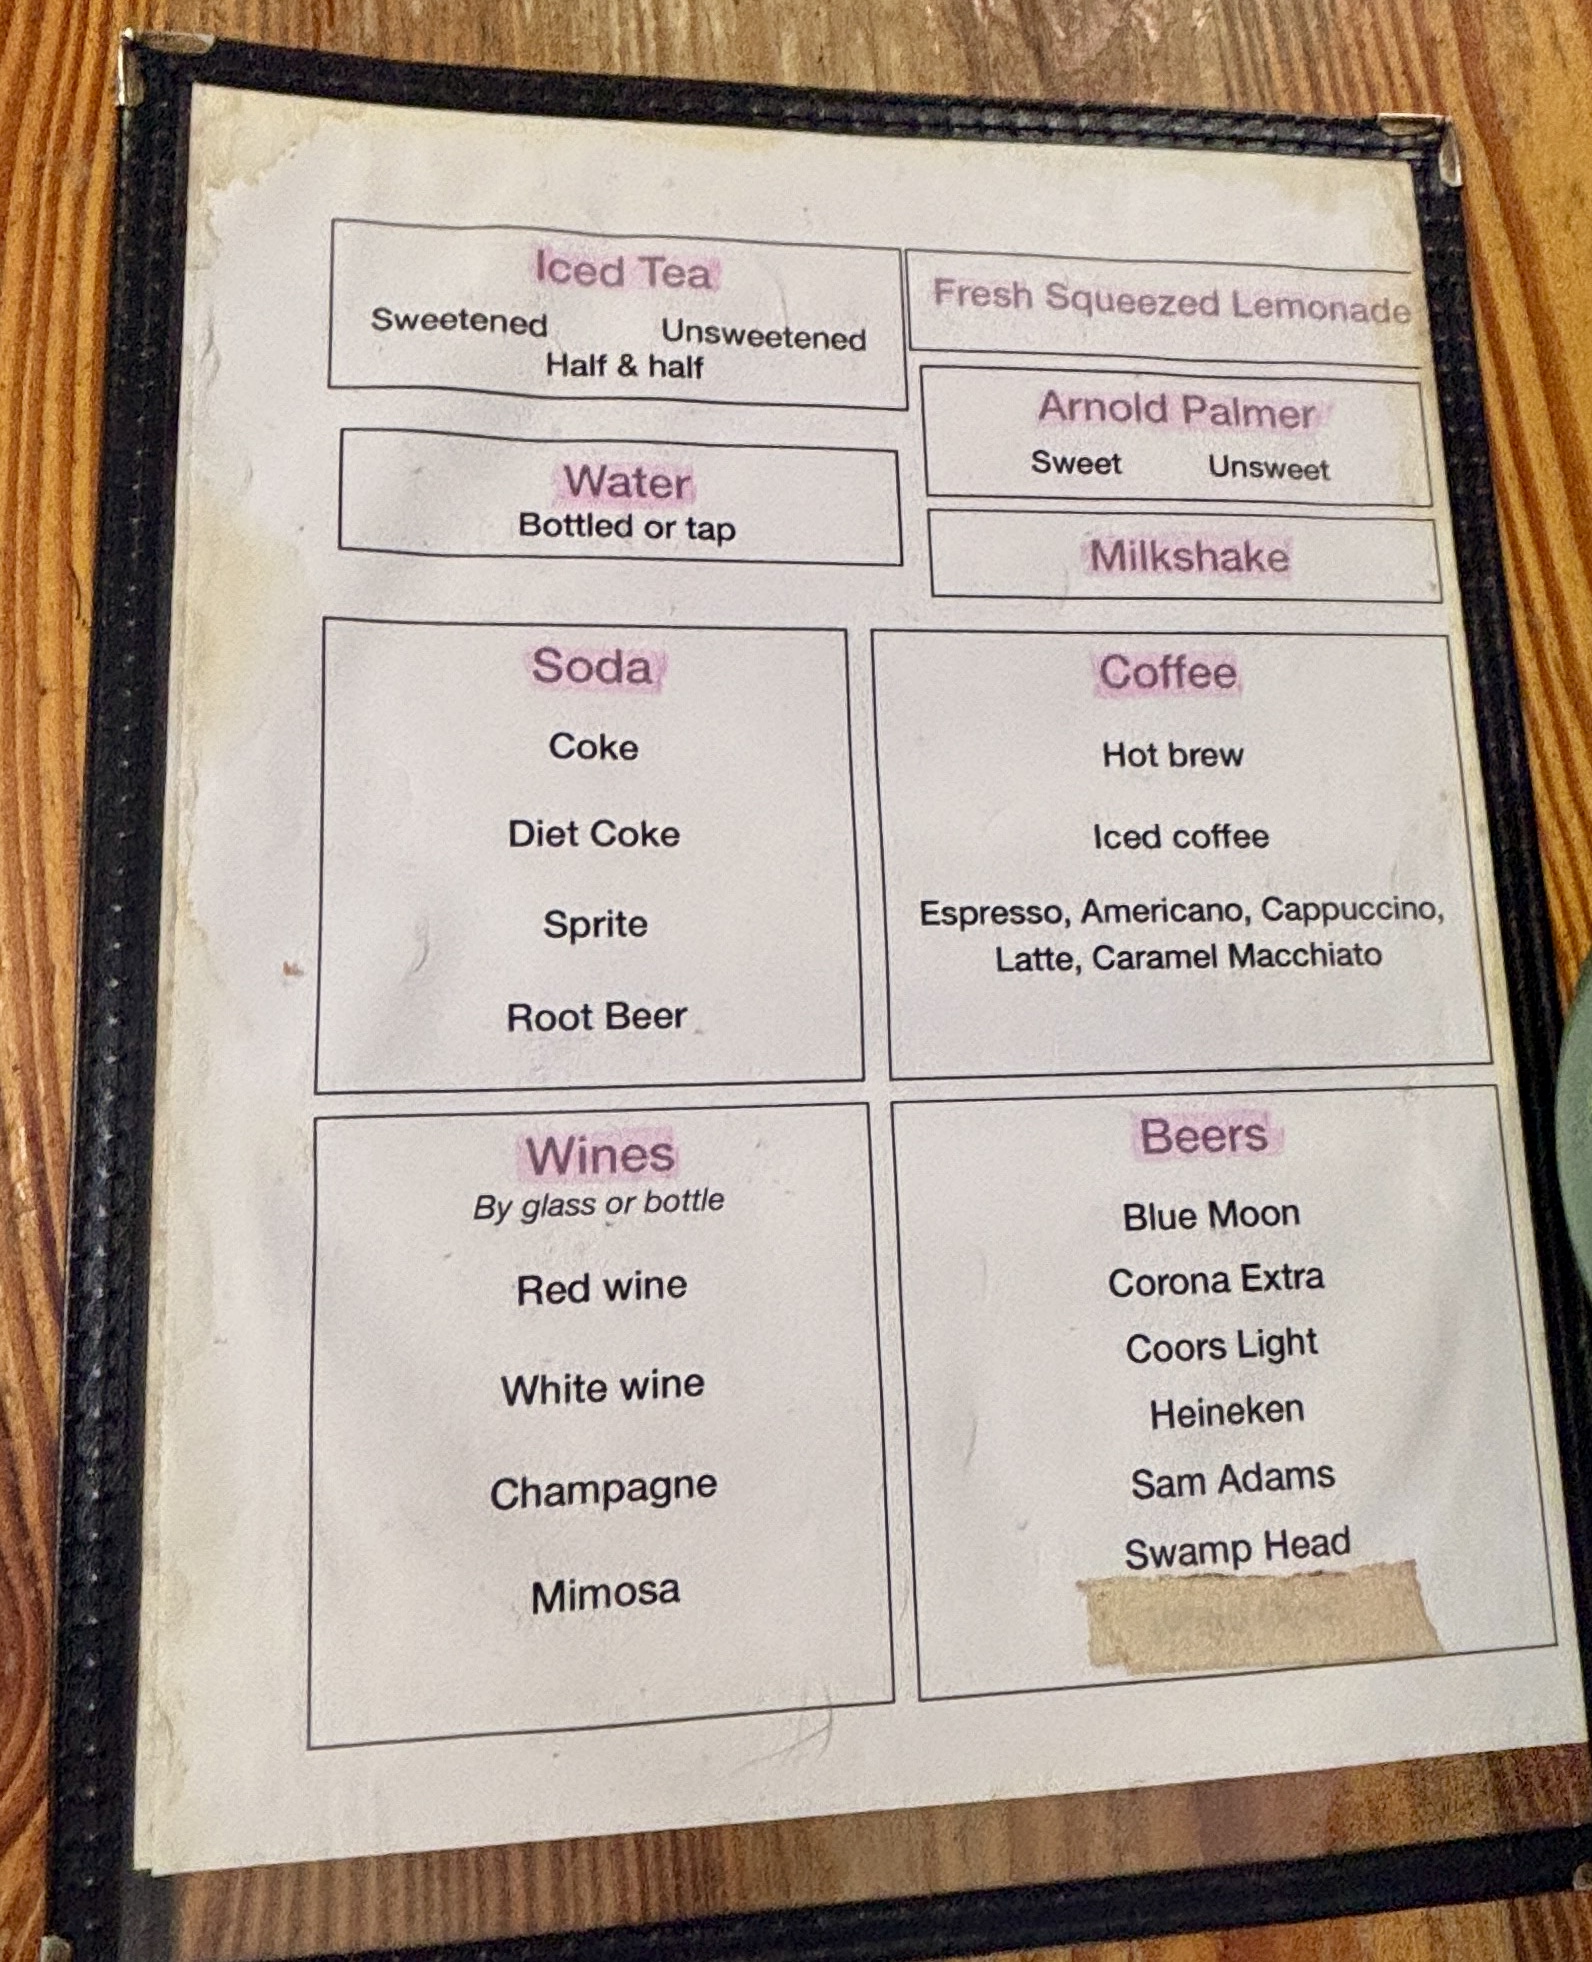 Iced Tea
Sweetened Unsweetened
Half & half
Fresh Squeezed Lemonade
Arnold Palmer
Sweet Unsweet
Water
Bottled or tap
Milkshake
Soda
Coke
Diet Coke
Sprite
Root Beer
Coffee
Hot brew
Iced coffee
Espresso, Americano, Cappuccino,
Latte, Caramel Macchiato
Wines
By glass or bottle
Red wine
White wine
Champagne
Mimosa
Beers
Blue Moon
Corona Extra
Coors Light
Heineken
Sam Adams
Swamp Head